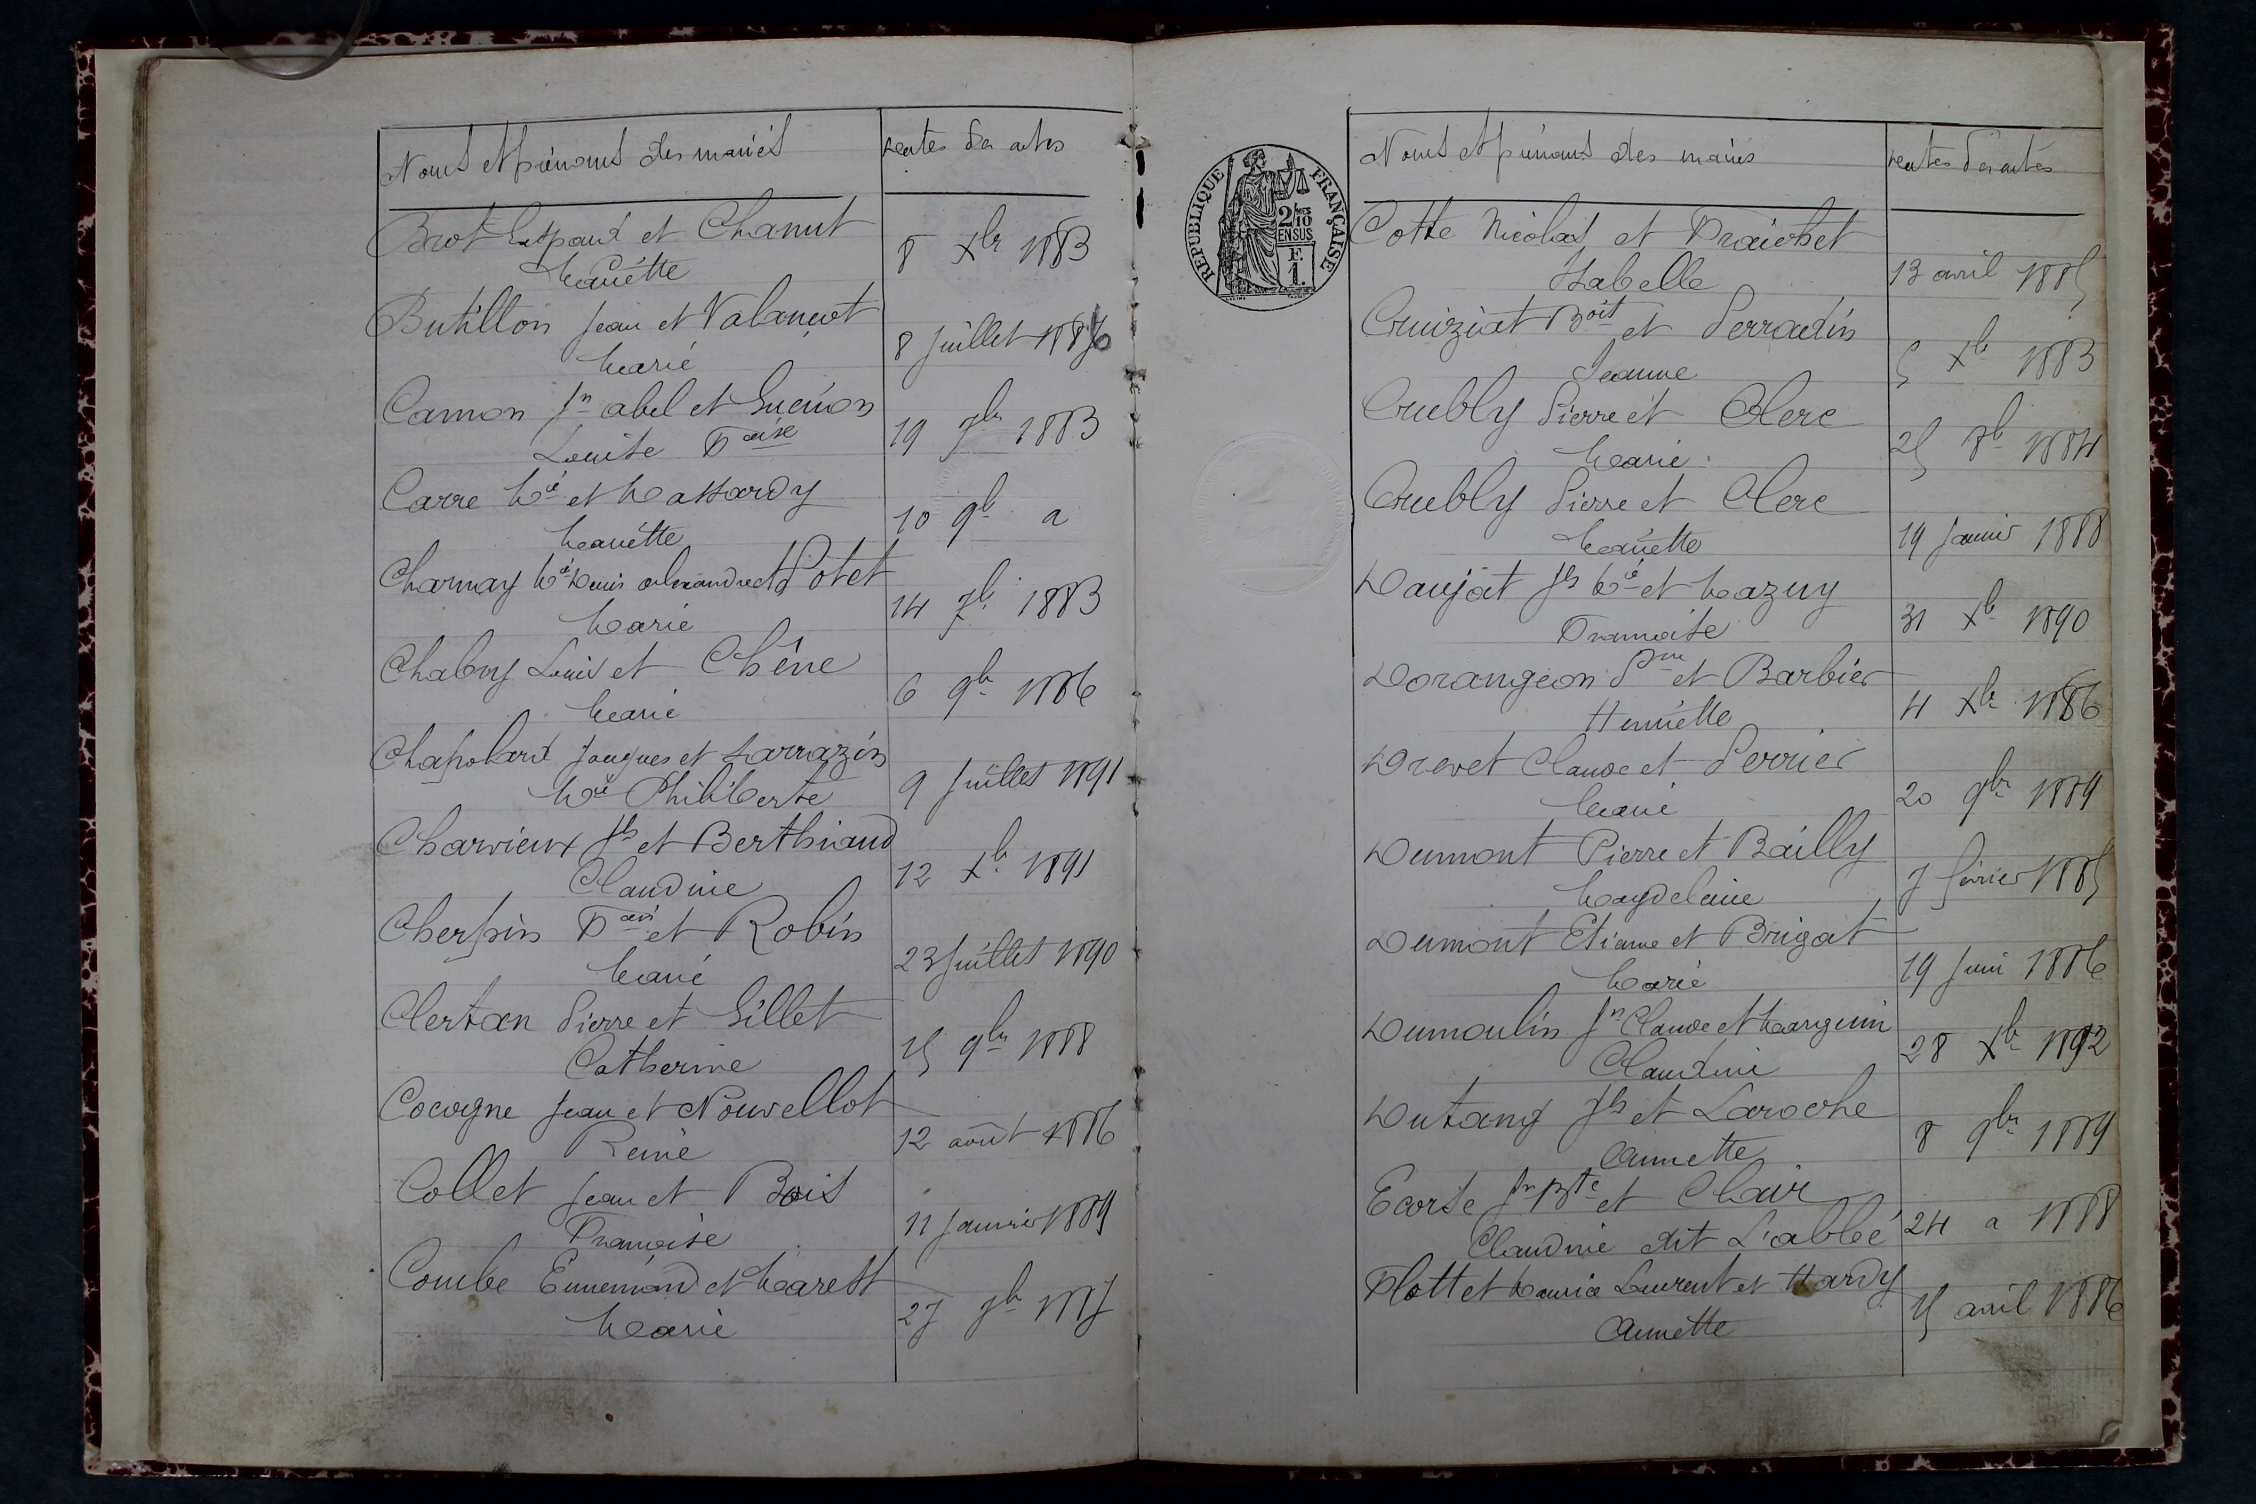 Noms et prénoms des mariés
Dates des actes
Brot Gaspard et Chanut
Mariette
8 Xbr 1883
Butillon Jean et Valançot
Marie
8 Juillet 1886
Camon Jn abel et Guénon
Louise Fçoise
19 7br 1883
Carre Mie et Mathardy
Mariette
10 9b a
Charnay Mie Denis alexandre et Potet
Marie
14 7b 1883
Chabry Louis et Chêne
Marie
6 9b 1886
Chapolard Jacques et Sarrazin
Mie Philiberte
9 Juillet 1891
Charvieux Jh et Berthiaud
Claudine
12 Xb 1891
Cherpin Fçois et Robin
Marie
23 Juillet 1890
Clertan Pierre et Gillet
Catherine
15 9br 1888
Cocogne Jean et Nouvellot
Reine
12 août 1886
Collet Jean et Bois
Françoise
11 Janvier 1889
Combe Ennemond et Marett
Marie
27 9b 1887
REPUBLIQUE FRANÇAISE
2/10
EN SUS
F.
1.
Noms et prénoms des mariés
Dates des actes
Cotte Nicolas et Fraichet
Isabelle
13 avril 1885
Cruiziat Boit et Perradin
Jeanne
5 Xb 1883
Crubly Pierre et Clerc
Marie
25 8b 1884
Crubly Pierre et Clerc
Mariette
19 Janvier 1888
Daujat Jh Mie et Mazuy
Françoise
31 Xb 1890
Dorangeon Pre et Barbier
Henriette
4 Xbr 1886
Drevet Claude et Perrier
Marie
20 9br 1889
Dumont Pierre et Bailly
Magdeleine
7 février 1885
Dumont Etienne et Brigat
Marie
19 Juin 1886
Dumoulin Jn Claude et Marguin
Claudine
28 Xb 1892
Dutang Jh et Laroche
Annette
8 9br 1889
Ecorse Jn Bte et Clair
Claudine dit L'abbé
24 a 1888
Flottet Marie Laurent et Hardy
Annette
15 avril 1886